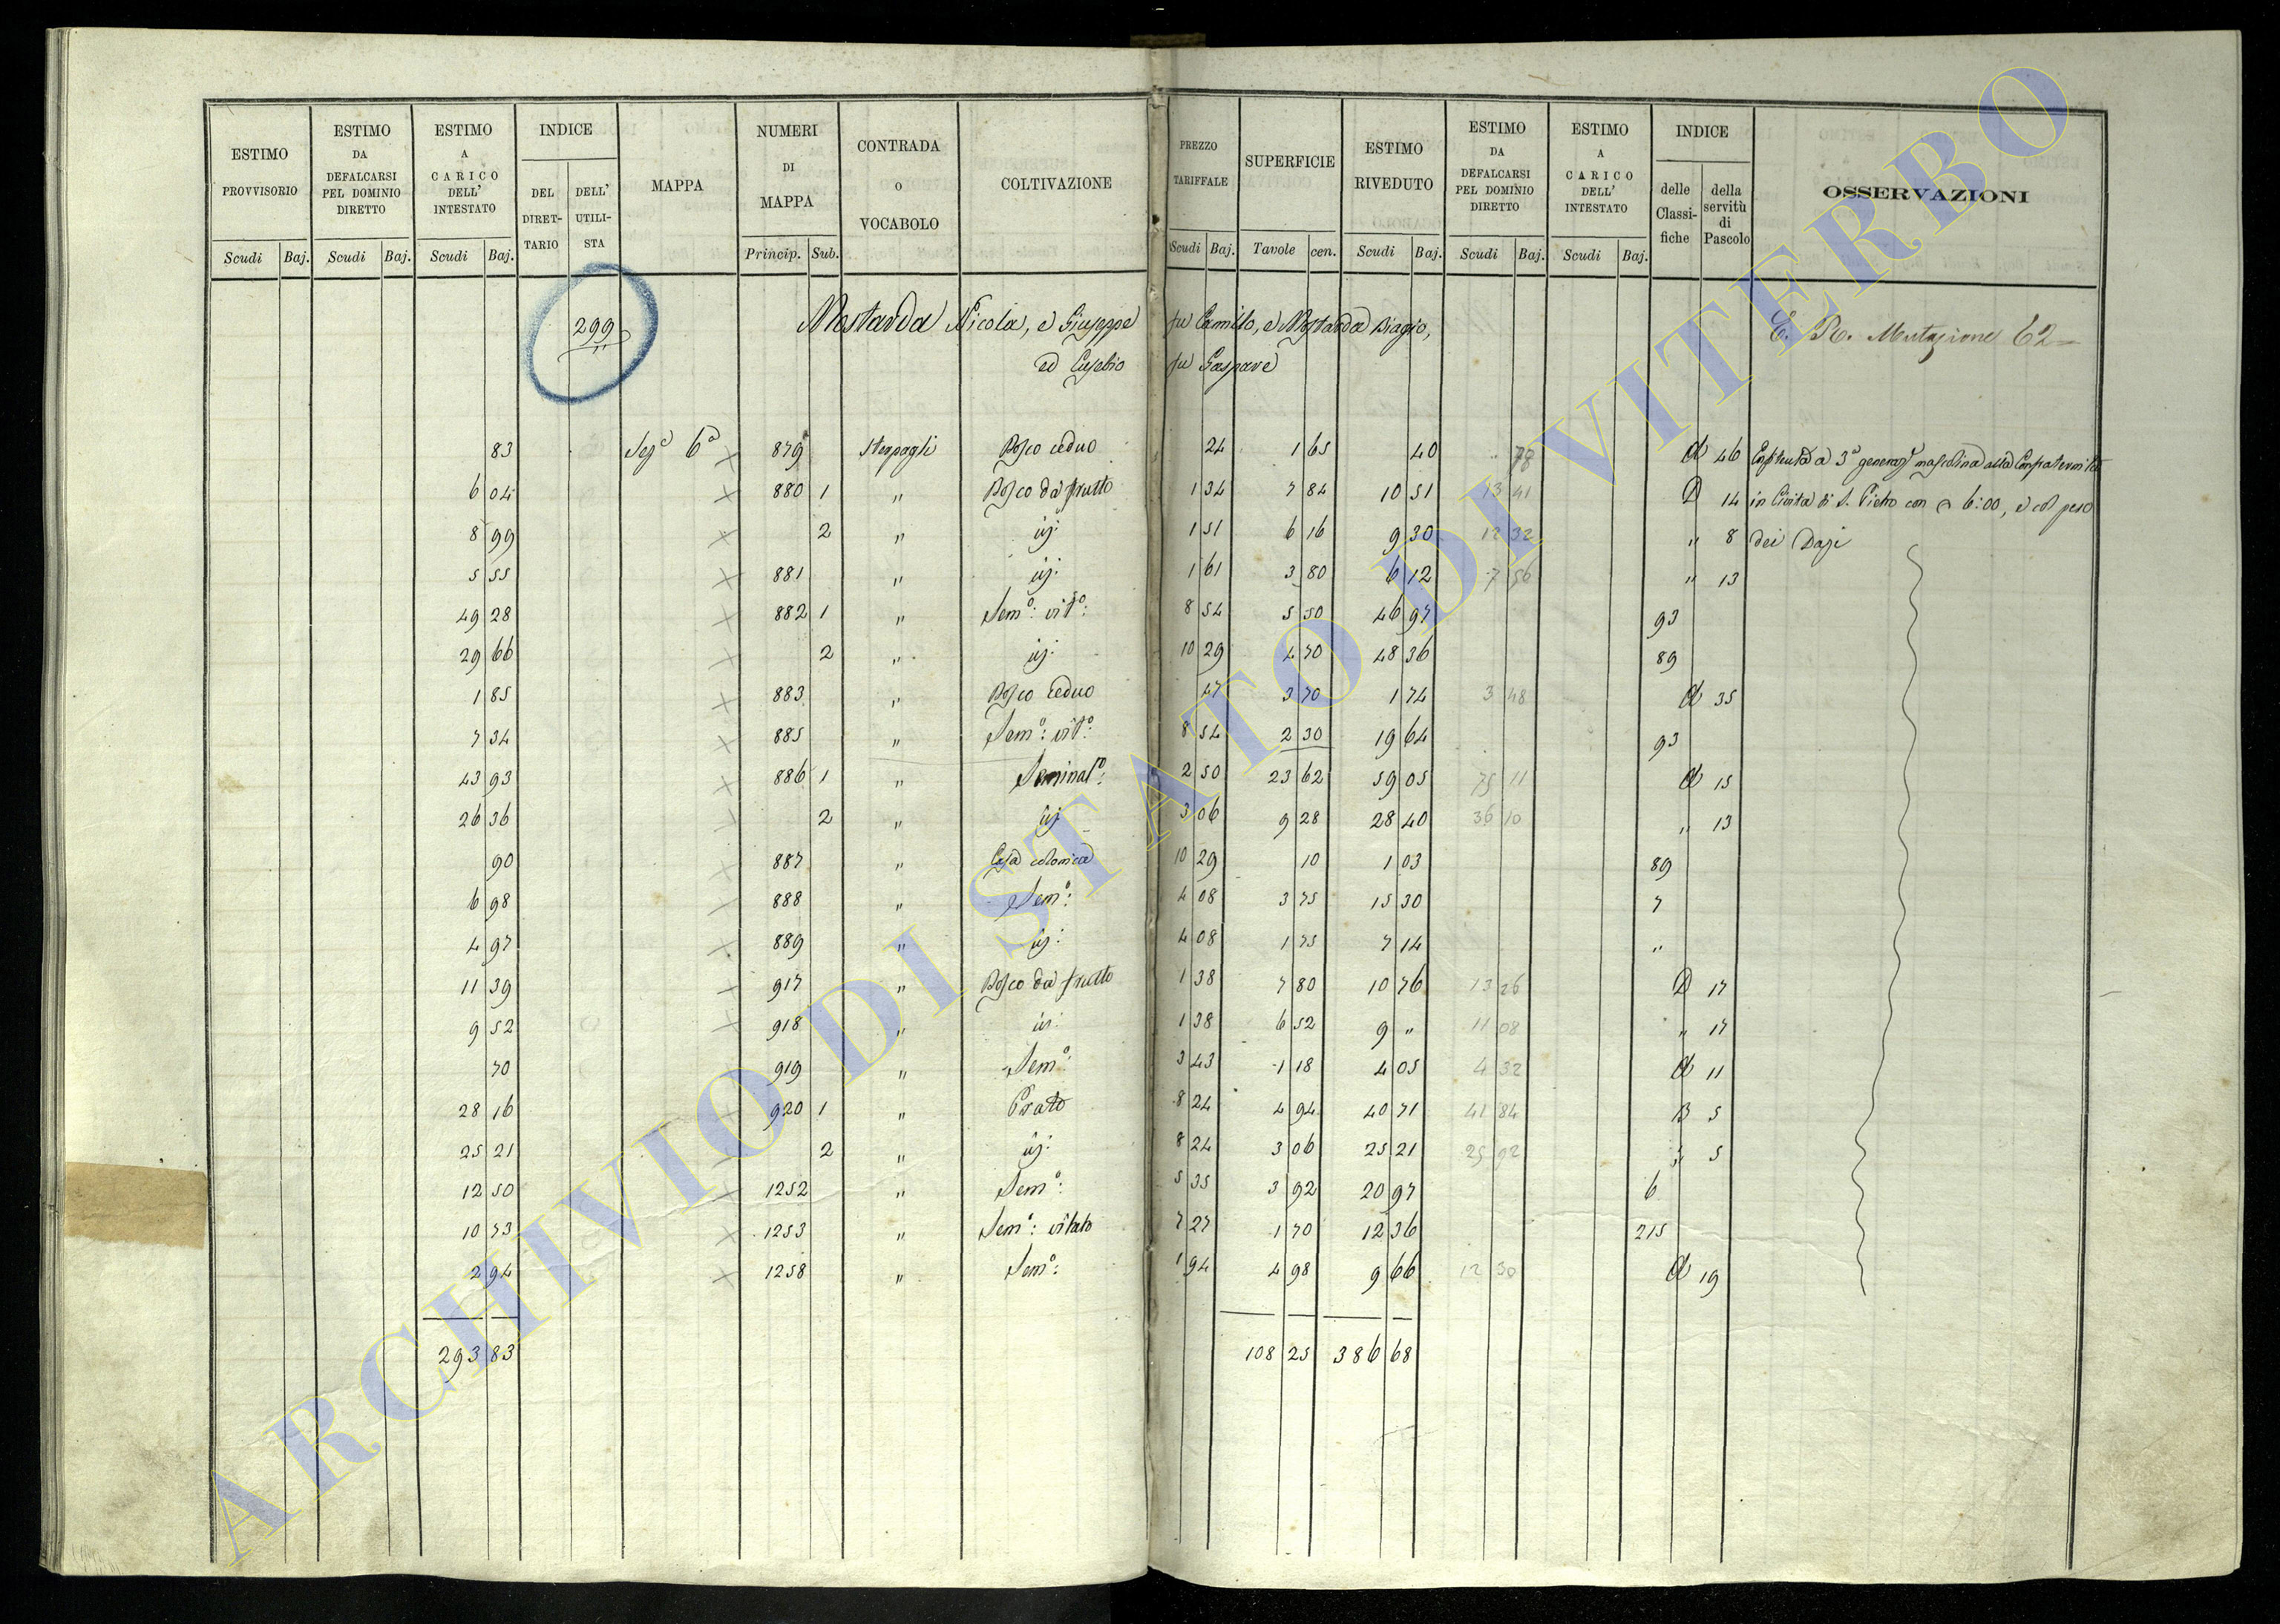 ESTIMO PROVVISORIO
ESTIMO DA DEFALCARSI PEL DOMINIO DIRETTO
ESTIMO A CARICO DELL' INTESTATO
INDICE
DEL DIRET-TARIO
DELL' UTILI-STA
MAPPA
NUMERI DI MAPPA
CONTRADA O VOCABOLO
COLTIVAZIONE
PREZZO TARIFFALE
SUPERFICIE
ESTIMO RIVEDUTO
ESTIMO DA DEFALCARSI PEL DOMINIO DIRETTO
ESTIMO A CARICO DELL' INTESTATO
INDICE
delle Classi-fiche
della servitù di Pascolo
OSSERVAZIONI
Scudi Baj. Scudi Baj. Scudi Baj. Princip. Sub. Scudi Baj. Tavole cen. Scudi Baj. Scudi Baj. Scudi Baj.
299 Mostarda Nicola, e Giuseppe fu Camillo, e Mostarda Biagio, Mutazione 62
ed Eusebio fu Gaspare
83 Sez 6a 879 Sterpagli Bosco ceduo 24 1 65 40 d 46 a 3a mascolina alla Confraternita
6 04 880 1 " Bosco da frutto 1 34 7 84 10 51 13 41 D 14 in Civita di S. Pietro con 6:00, e col peso
8 99 2 " id: 1 51 6 16 9 30 12 32 " 8 dei Dazi
5 55 881 " id: 1 61 3 80 6 12 7 56 " 13
49 28 882 1 " Sem.o: vit.o: 8 54 5 50 46 97 93
29 66 2 " id: 10 29 4 70 48 36 89
1 85 883 " Bosco ceduo 47 3 70 1 74 3 48 d 35
7 34 885 " Sem.o: vit.o: 8 54 2 30 19 64 93
43 93 886 1 " Seminat.o: 2 50 23 62 59 05 75 11 d 15
26 36 2 " id: 3 06 9 28 28 40 36 10 " 13
90 887 " Casa colonica 10 29 10 1 03 89
6 98 888 " Sem.o: 4 08 3 75 15 30 7
4 97 889 " id: 4 08 1 75 7 14 "
11 39 917 " Bosco da frutto 1 38 7 80 10 76 13 26 D 17
9 52 918 " id: 1 38 6 52 9 " 11 08 " 17
70 919 " Sem.o: 3 43 1 18 4 05 4 32 d 11
28 16 920 1 " Prato 8 24 4 94 40 71 41 84 B 5
25 21 2 " id: 8 24 3 06 25 21 25 92 5
12 50 1252 " Sem.o: 5 35 3 92 20 97 6
10 73 1253 " Sem.o: vitato 7 27 1 70 12 36 215
2 94 1258 " Sem.o: 1 94 4 98 9 66 12 30 d 19
293 83 108 25 386 68
ARCHIVIO DI STATO DI VITERBO